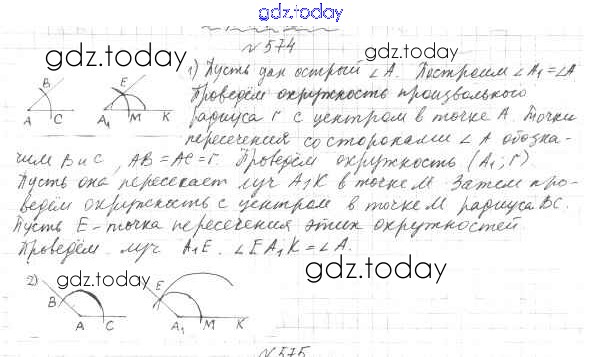 gdz.today
№574
gdz.today gdz.today
1) Пусть дан острый ∠A. Построим ∠A₁=∠A
B E
A C A₁ M K
Проведём окружность произвольного
радиуса r с центром в точке A. Точки
пересечения со сторонами ∠A обозна-
чим B и C, AB=AC=r. Проведём окружность (A₁;r)
Пусть она пересекает луч A₁K в точке M. Затем про-
ведём окружность с центром в точке M радиуса BC.
Пусть E-точка пересечения этих окружностей.
Проведём луч A₁E. ∠EA₁K=∠A.
gdz.today
2) gdz.today
B E
A C A₁ M K
№575